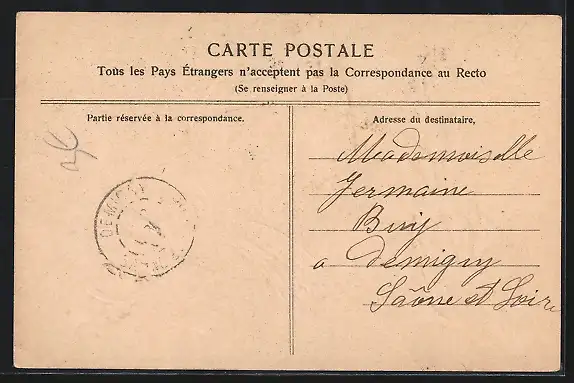 CARTE POSTALE
Tous les Pays Étrangers n'acceptent pas la Correspondance au Recto
(Se renseigner à la Poste)
Partie réservée à la correspondance.
Adresse du destinataire,
Mademoiselle
Germaine
a Demigny
Saône et Loire
DEMIGNY